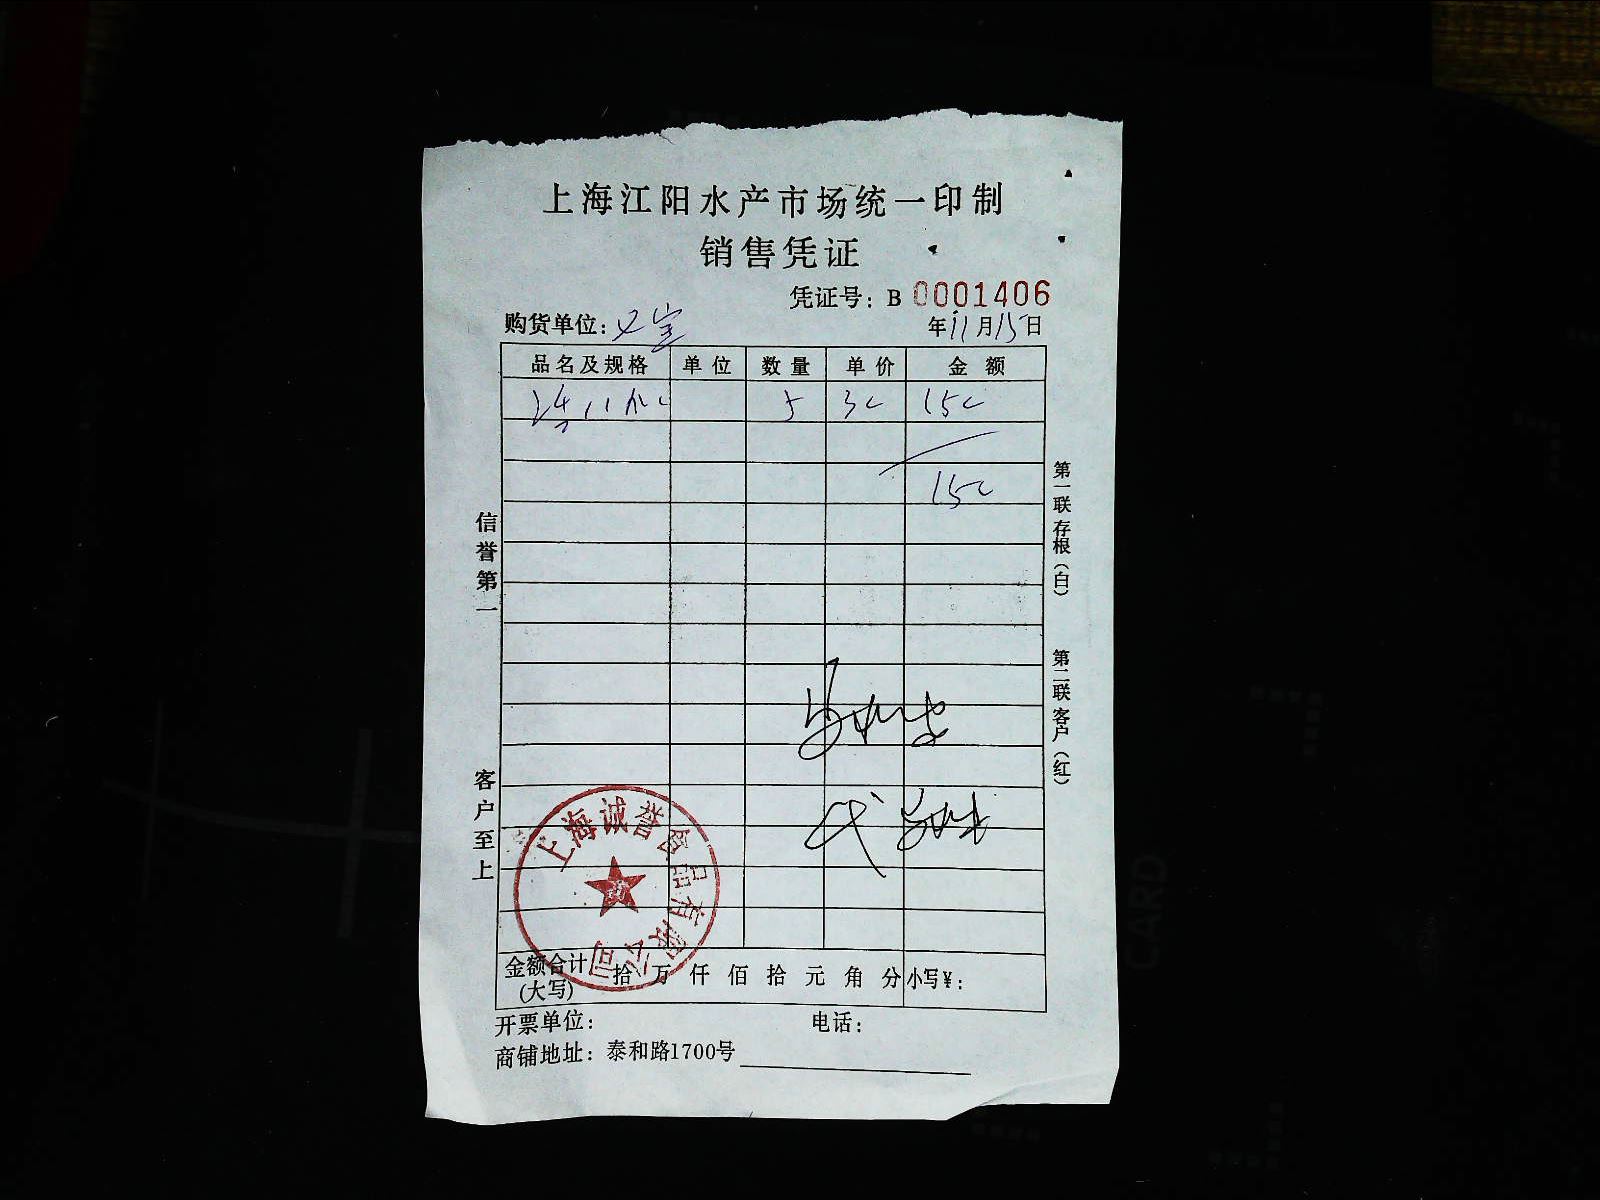 上海江阳水产市场统一印制
销售凭证
凭证号：B 0001406
购货单位：
年11月15日
品名及规格 单位 数量 单价 金额
5 30 150
150
信誉第一
客户至上
第一联存根（白）
第二联客户（红）
上海诚誉食品有限公司
金额合计(大写) 拾 万 仟 佰 拾 元 角 分 小写¥：
开票单位： 电话：
商铺地址：泰和路1700号